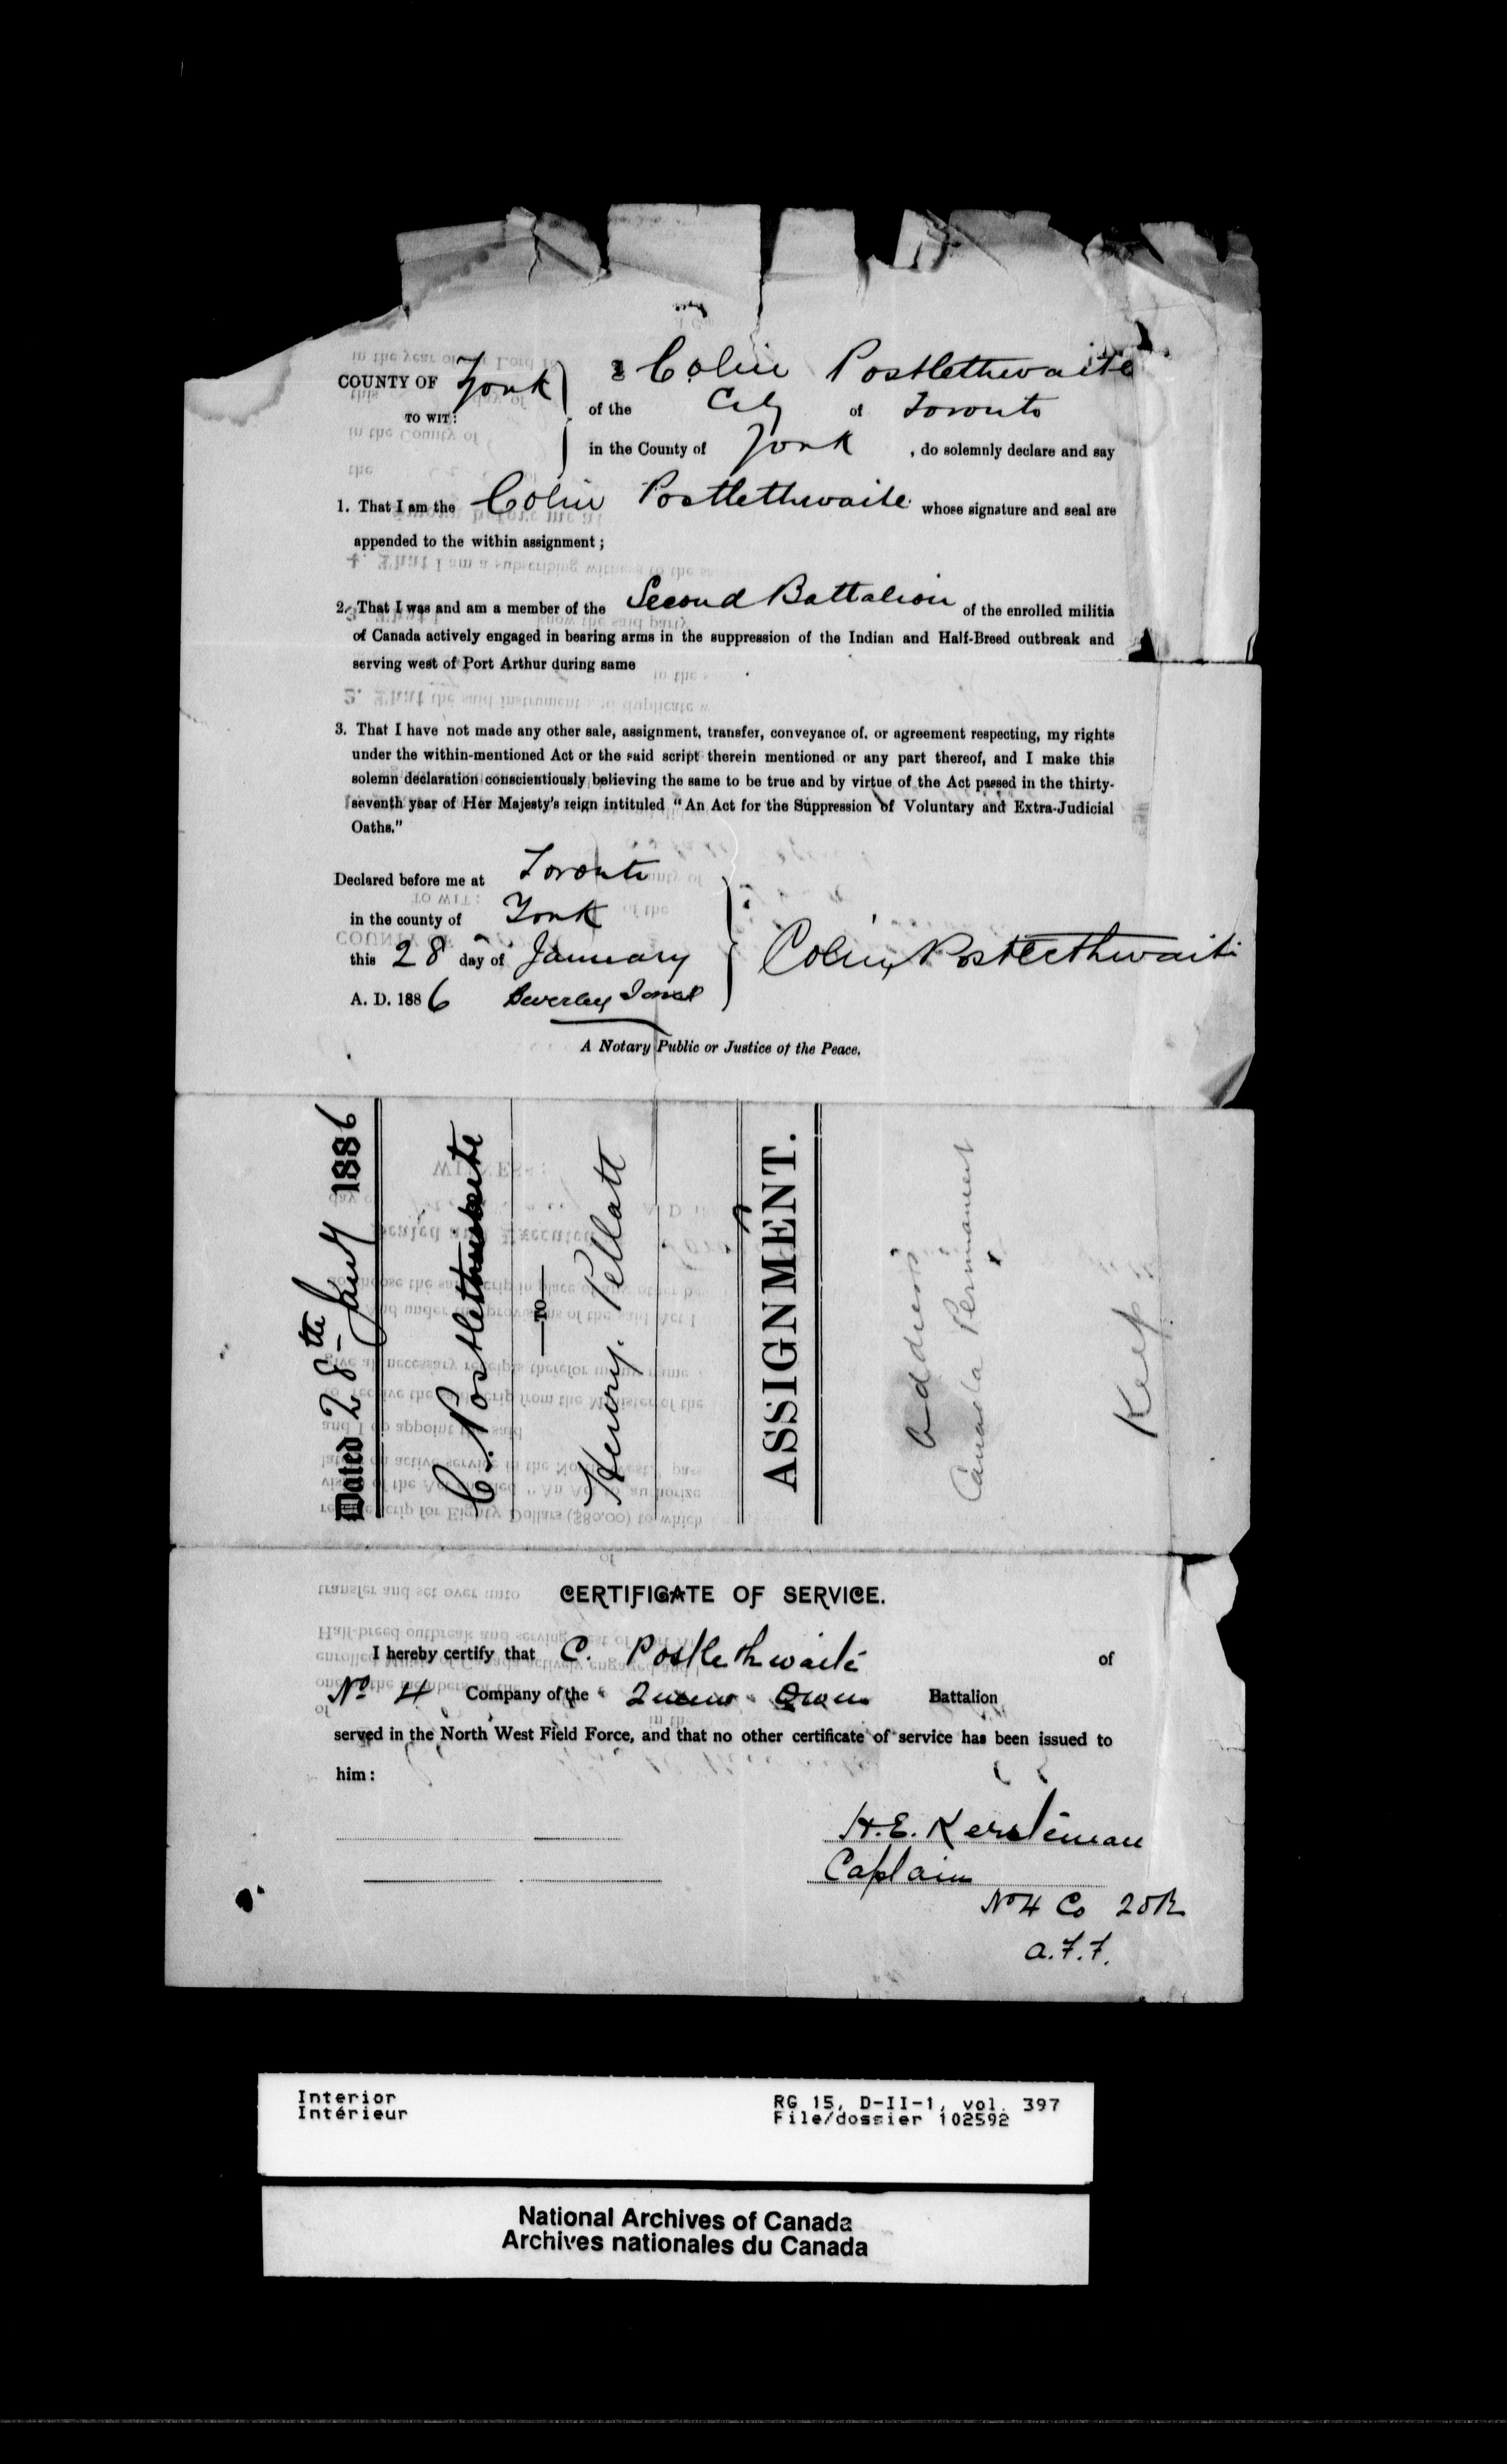 COUNTY OF York
TO WIT:
I Colin Postlethwaite
of the City of Toronto
in the County of York, do solemnly declare and say
1. That I am the Colin Postlethwaite whose signature and seal are
appended to the within assignment;
2. That I was and am a member of the Second Battalion of the enrolled militia
of Canada actively engaged in bearing arms in the suppression of the Indian and Half-Breed outbreak and
serving west of Port Arthur during same
3. That I have not made any other sale, assignment, transfer, conveyance of, or agreement respecting, my rights
under the within-mentioned Act or the said script therein mentioned or any part thereof, and I make this
solemn declaration conscientiously believing the same to be true and by virtue of the Act passed in the thirty-
seventh year of Her Majesty's reign intituled "An Act for the Suppression of Voluntary and Extra-Judicial
Oaths."
Declared before me at Toronto
in the county of York
this 28 day of January
A. D. 1886 Beverley Jones
Colin Postlethwaite
A Notary Public or Justice of the Peace.
Dated 28th Jany 1886
C. Postlethwaite
—TO—
Henry. Pellatt
ASSIGNMENT.
Address
Canada Permanent
CERTIFICATE OF SERVICE.
I hereby certify that C. Postlethwaite of
No 4 Company of the Queens Own Battalion
served in the North West Field Force, and that no other certificate of service has been issued to
him:
H.E. Kersteman
Captain
No 4 Co QOR
A.F.F.
Interior
Intérieur
RG 15, D-II-1, vol. 397
File/dossier 102592
National Archives of Canada
Archives nationales du Canada